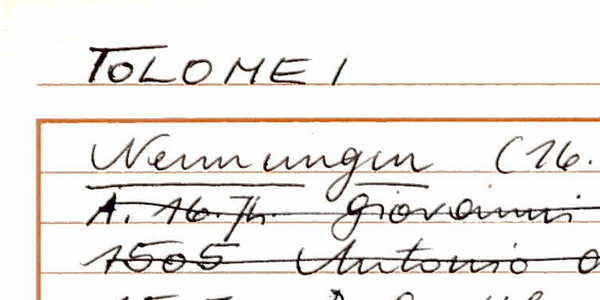 TOLOMEI
Nennungen (16.
A. 16. Jh. Giovanni
1505 Antonio